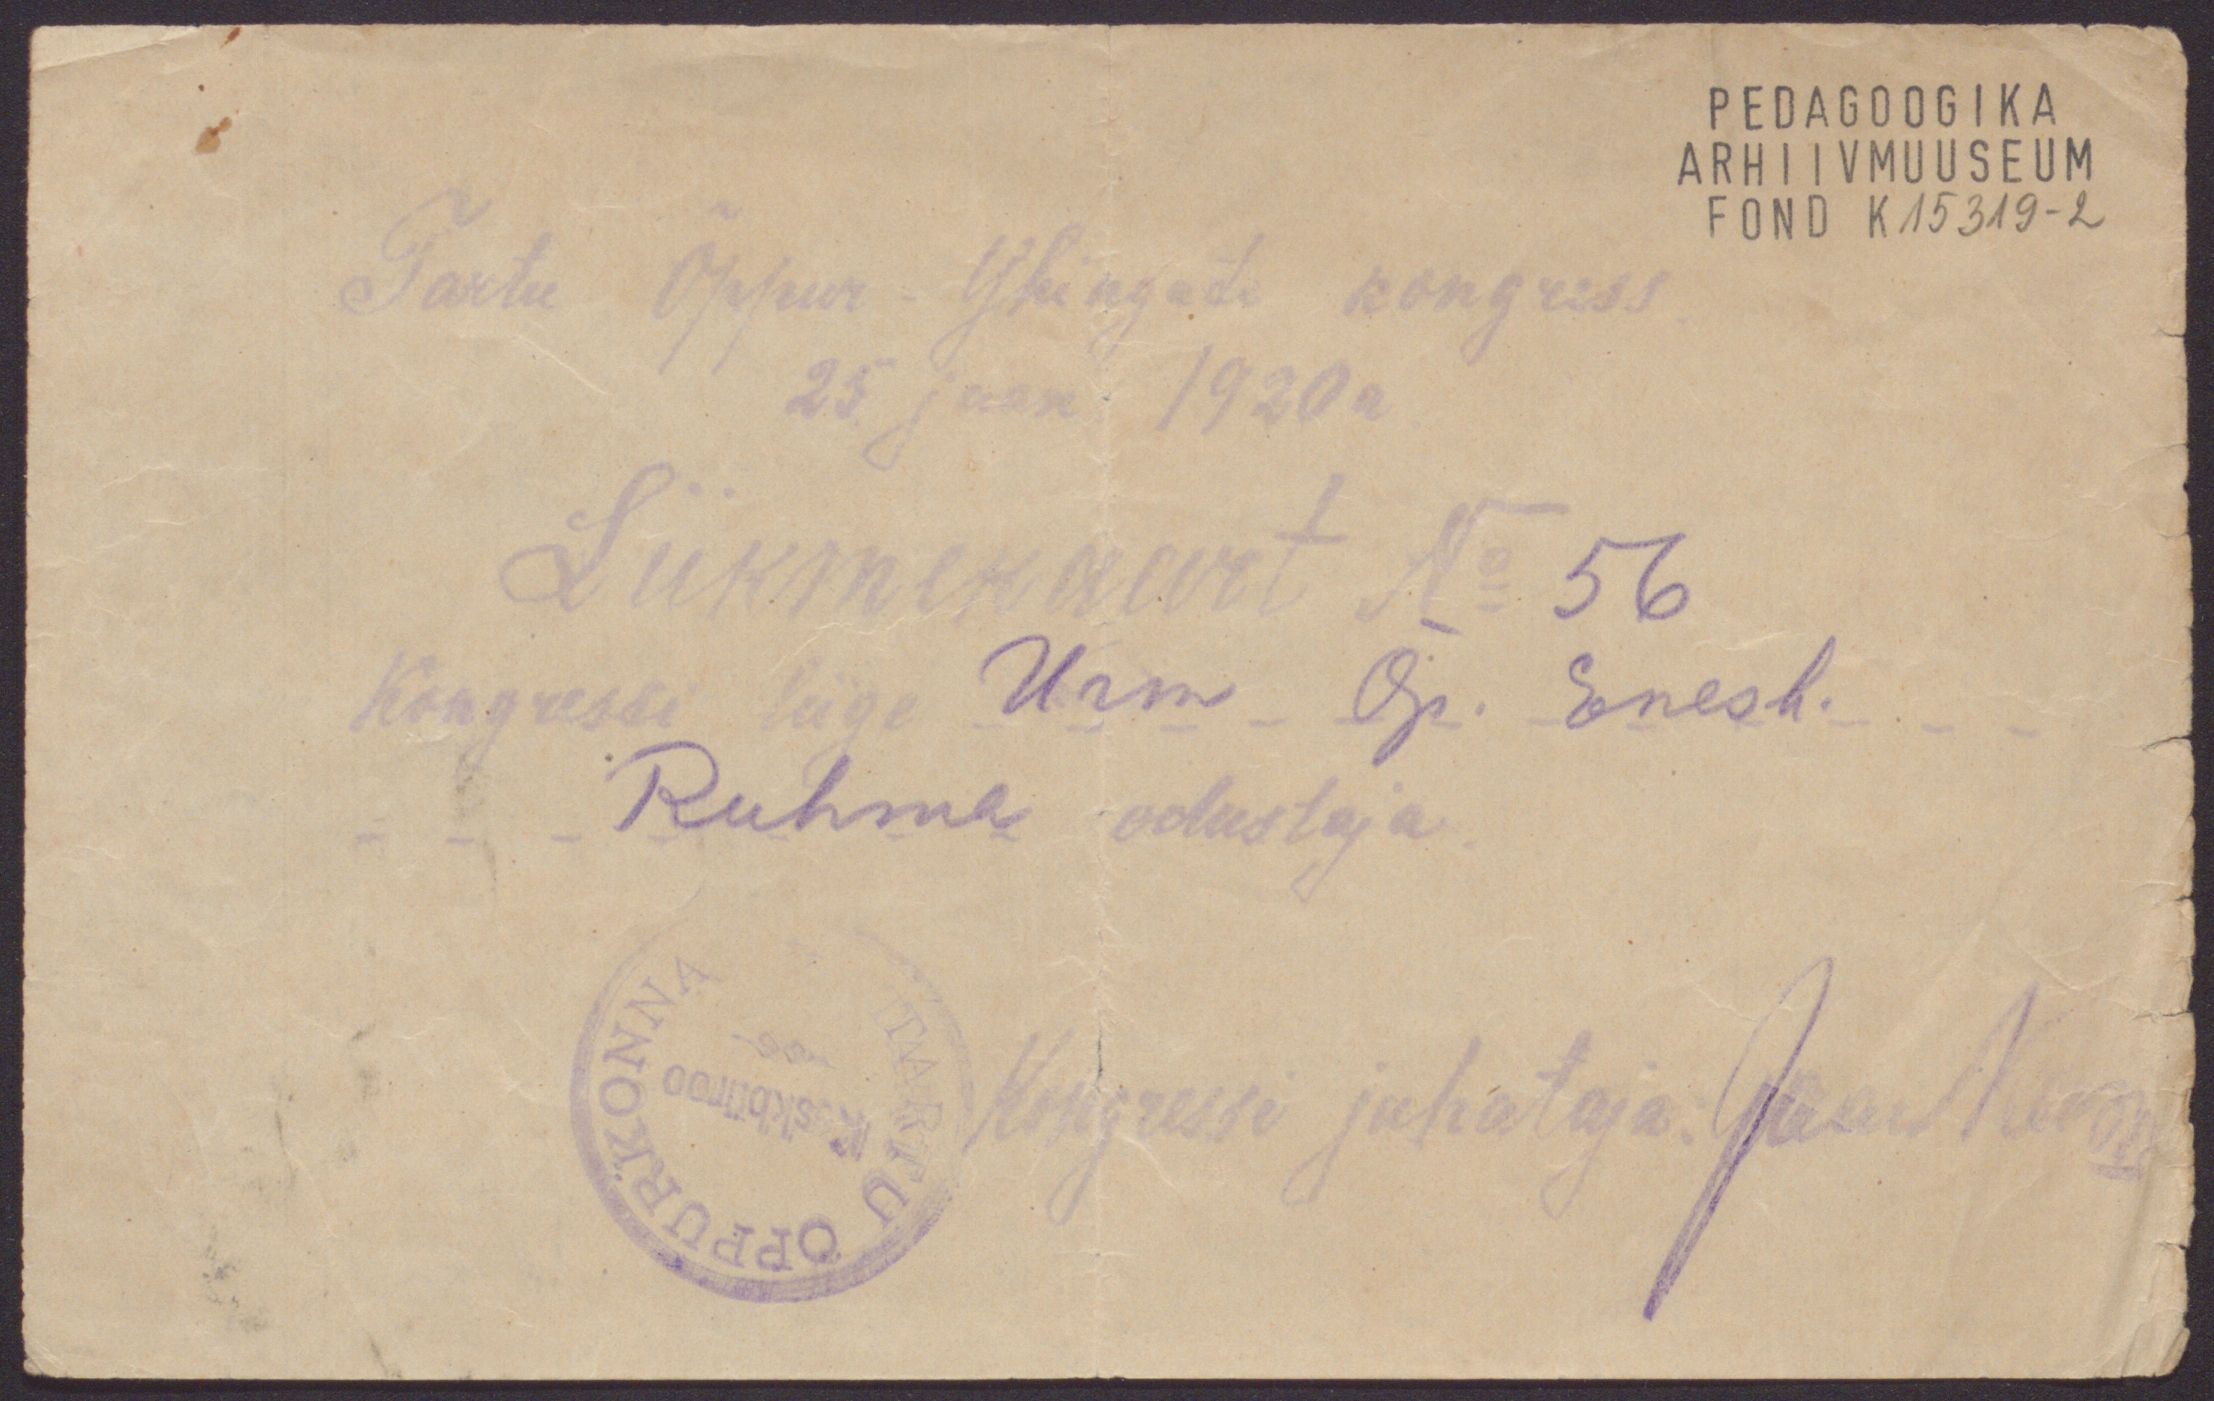 PEDAGOOGIKA
ARHIIVMUUSEUM
FOND K 15319-2
Tartu Õppur-Ühingute kongress
25 jaan 1920 a.
Liikmekaart № 56
Kongressi liige Urm Õp. Enesh.
Ruhma odustaja.
TARTU ÕPPURKONNA
Keskbüroo
Kongressi juhataja: Jaan